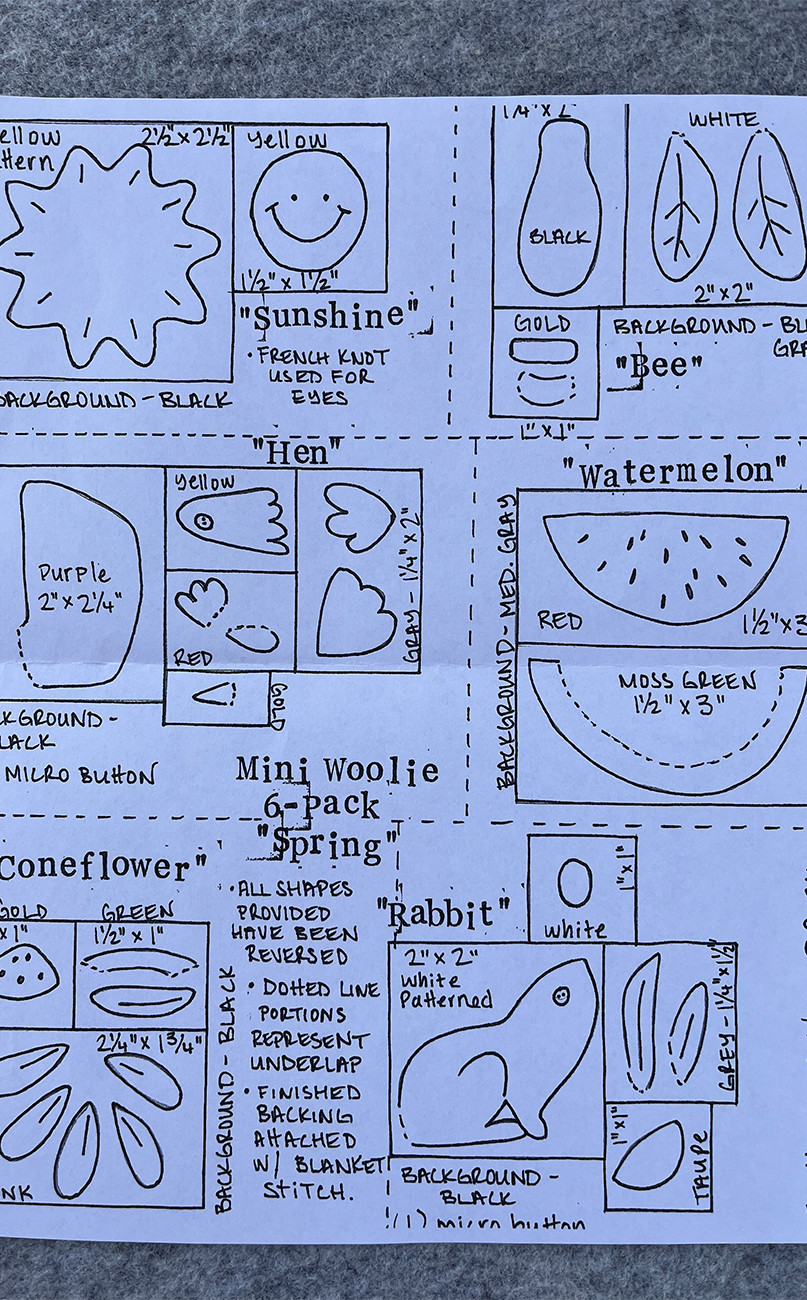 2½" x 2½"
Yellow
1½" x 1½"
"Sunshine"
• FRENCH KNOT
USED FOR
EYES
BACKGROUND - BLACK
WHITE
BLACK
2" x 2"
GOLD
BACKGROUND -
"Bee"
1" x 1"
"Hen"
Purple
2" x 2¼"
Yellow
RED
GRAY - 1¼" x 2"
GOLD
MICRO BUTTON
"Watermelon"
BACKGROUND - MED. GRAY
RED
1½" x 3
MOSS GREEN
1½" x 3"
Mini Woolie
6-Pack
"Spring"
• ALL SHAPES
PROVIDED
HAVE BEEN
REVERSED
• DOTTED LINE
PORTIONS
REPRESENT
UNDERLAP
• FINISHED
BACKING
ATTACHED
W/ BLANKET
STITCH.
Coneflower"
GOLD
x 1"
GREEN
1½" x 1"
2¼" x 1¾"
BACKGROUND - BLACK
"Rabbit"
1" x 1"
white
2" x 2"
White
Patterned
GREY - 1¼" x 1½"
1" x 1"
TAUPE
BACKGROUND -
BLACK
(1) micro button